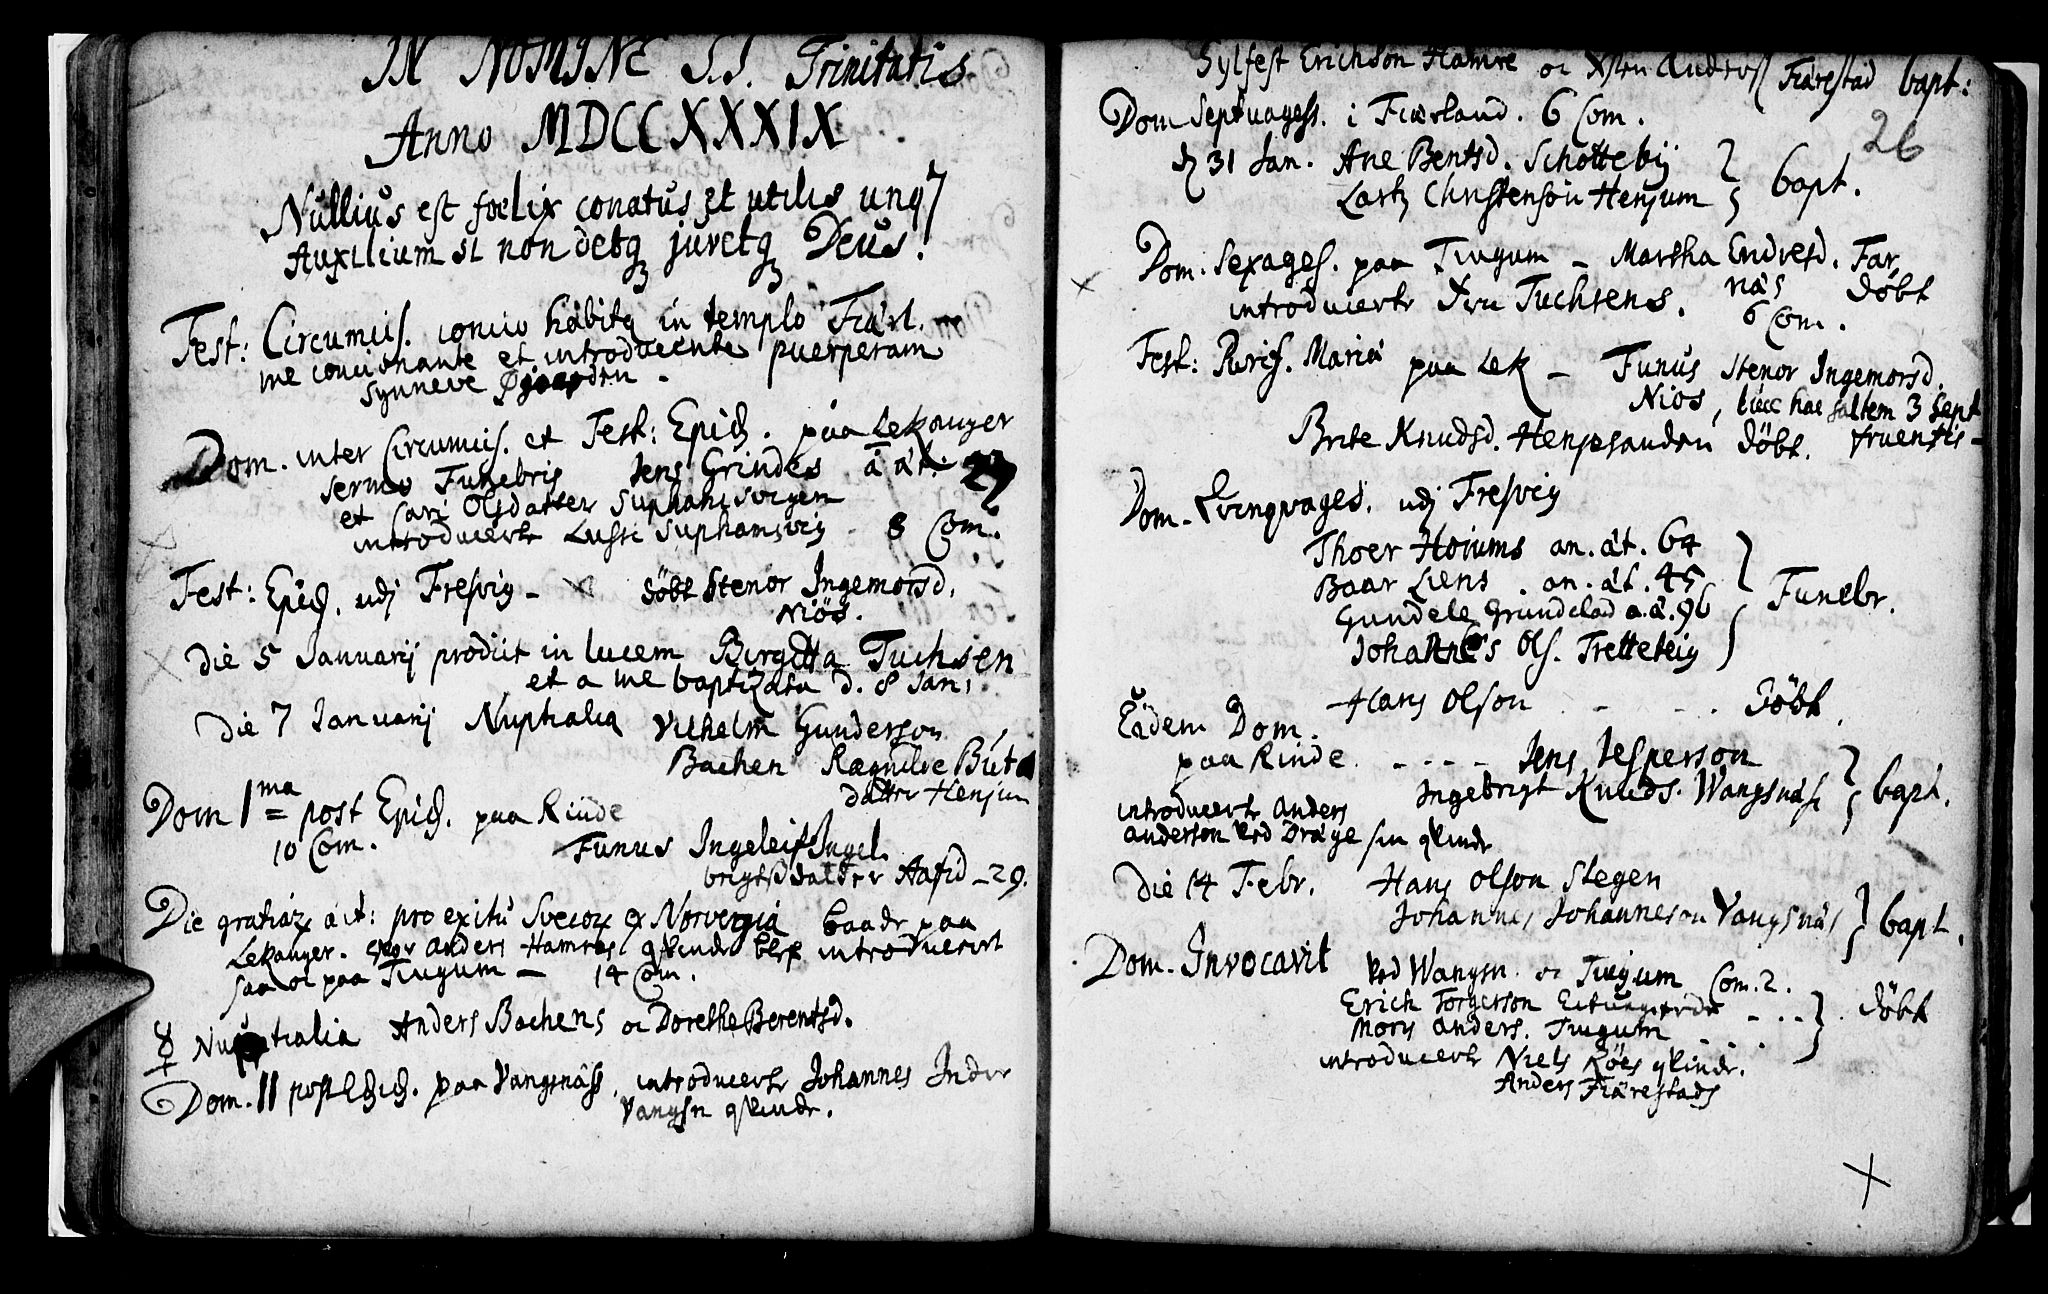 IN NOMINE S.S. Trinitatis
Anno MDCCXXXIX
Nullius est foelix conatus et utilis unq
Auxilium si non detq juvetq Deus.
Fest: Circumcis. concio habita in templo Fiærl.
me concionante et introducente puerperam
Synneve
Dom. inter Circumcis. et Fest: Epiph. paa Lekanger
sermo Funebris Jens Grindes à æt: 27
et Cari Olsdatter Suphamsvigen
introducerte Lussi Suphamsvig 8 Com.
Fest: Epiph. udj Fresvig - döbt Stenor Ingemorsd.
Niös.
Die 5 Januarij prodiit in lucem Birgitta Tuchsen
et a me baptizata d. 8 Jan:
Die 7 Januarij Nuptialia Vilhelm Gunderson
Bachen Ragnilde Buts
datter Henjum
Dom 1ma post Epiph. paa Rinde
10 Com. Funus Ingeleif Ingel
brigtsdatter Aafid - 29.
Die gratiar act: pro exitu Svecor ex Norvergia baade paa
Lekanger. Anders Hamres qvinde blef introducerit
saa oc paa Tiugum - 14 Com.
♀ Nuptialia Anders Bachens oc Dorethe Berentsd.
Dom. II post Epiph. paa Vangsnæss, introducerte Johannes Inder
Vangsn qvinde.
Sylfest Erichson Hamre oc Anders Fiærestad bapt:
26
Dom Septuagess. i Fiærland. 6 Com.
d 31 Jan. Ane Bentsd. Schottebÿ
Lars Christensön Henjum } bapt.
Dom. Sexages. paa Tiugum - Martha Endresd. Far
näs döbt
introducerte Fru Tuchsens. 6 Com.
Fest: Purif. Mariæ paa Lek - Funus Stenor Ingemorsd.
Niös, luce hac saltem 3 Sept
Brite Knudsd. Henjesanden döbt. fruentis -
Dom. Qvinqvages. udj Fresvig
Thoer Hoiums an. æt. 64
Baar Liens. an. æt. 45
Gundele Grundelad a. æ. 96
Johannes Ols. Tretteteig } Funebr.
Hans Olson - - . Döbt.
Eädem Dom.
paa Rinde. - - - - Jens Jesperson
Ingebrigt Knuds. Wangsnæs } bapt.
introducerte Anders
Anderson ved Dräge sin qvinde
Die 14 Febr. Hans Olson Stegen
Johannes Johanneson Vangsnäs } bapt.
Dom. Invocavit Ved Wangsn. oc Tiugum Com. 2.
Erich Torgerson
Mons Anders. Tiugum } Döbt
introducerte Niels Röes qvinde.
Anders Fiærestads